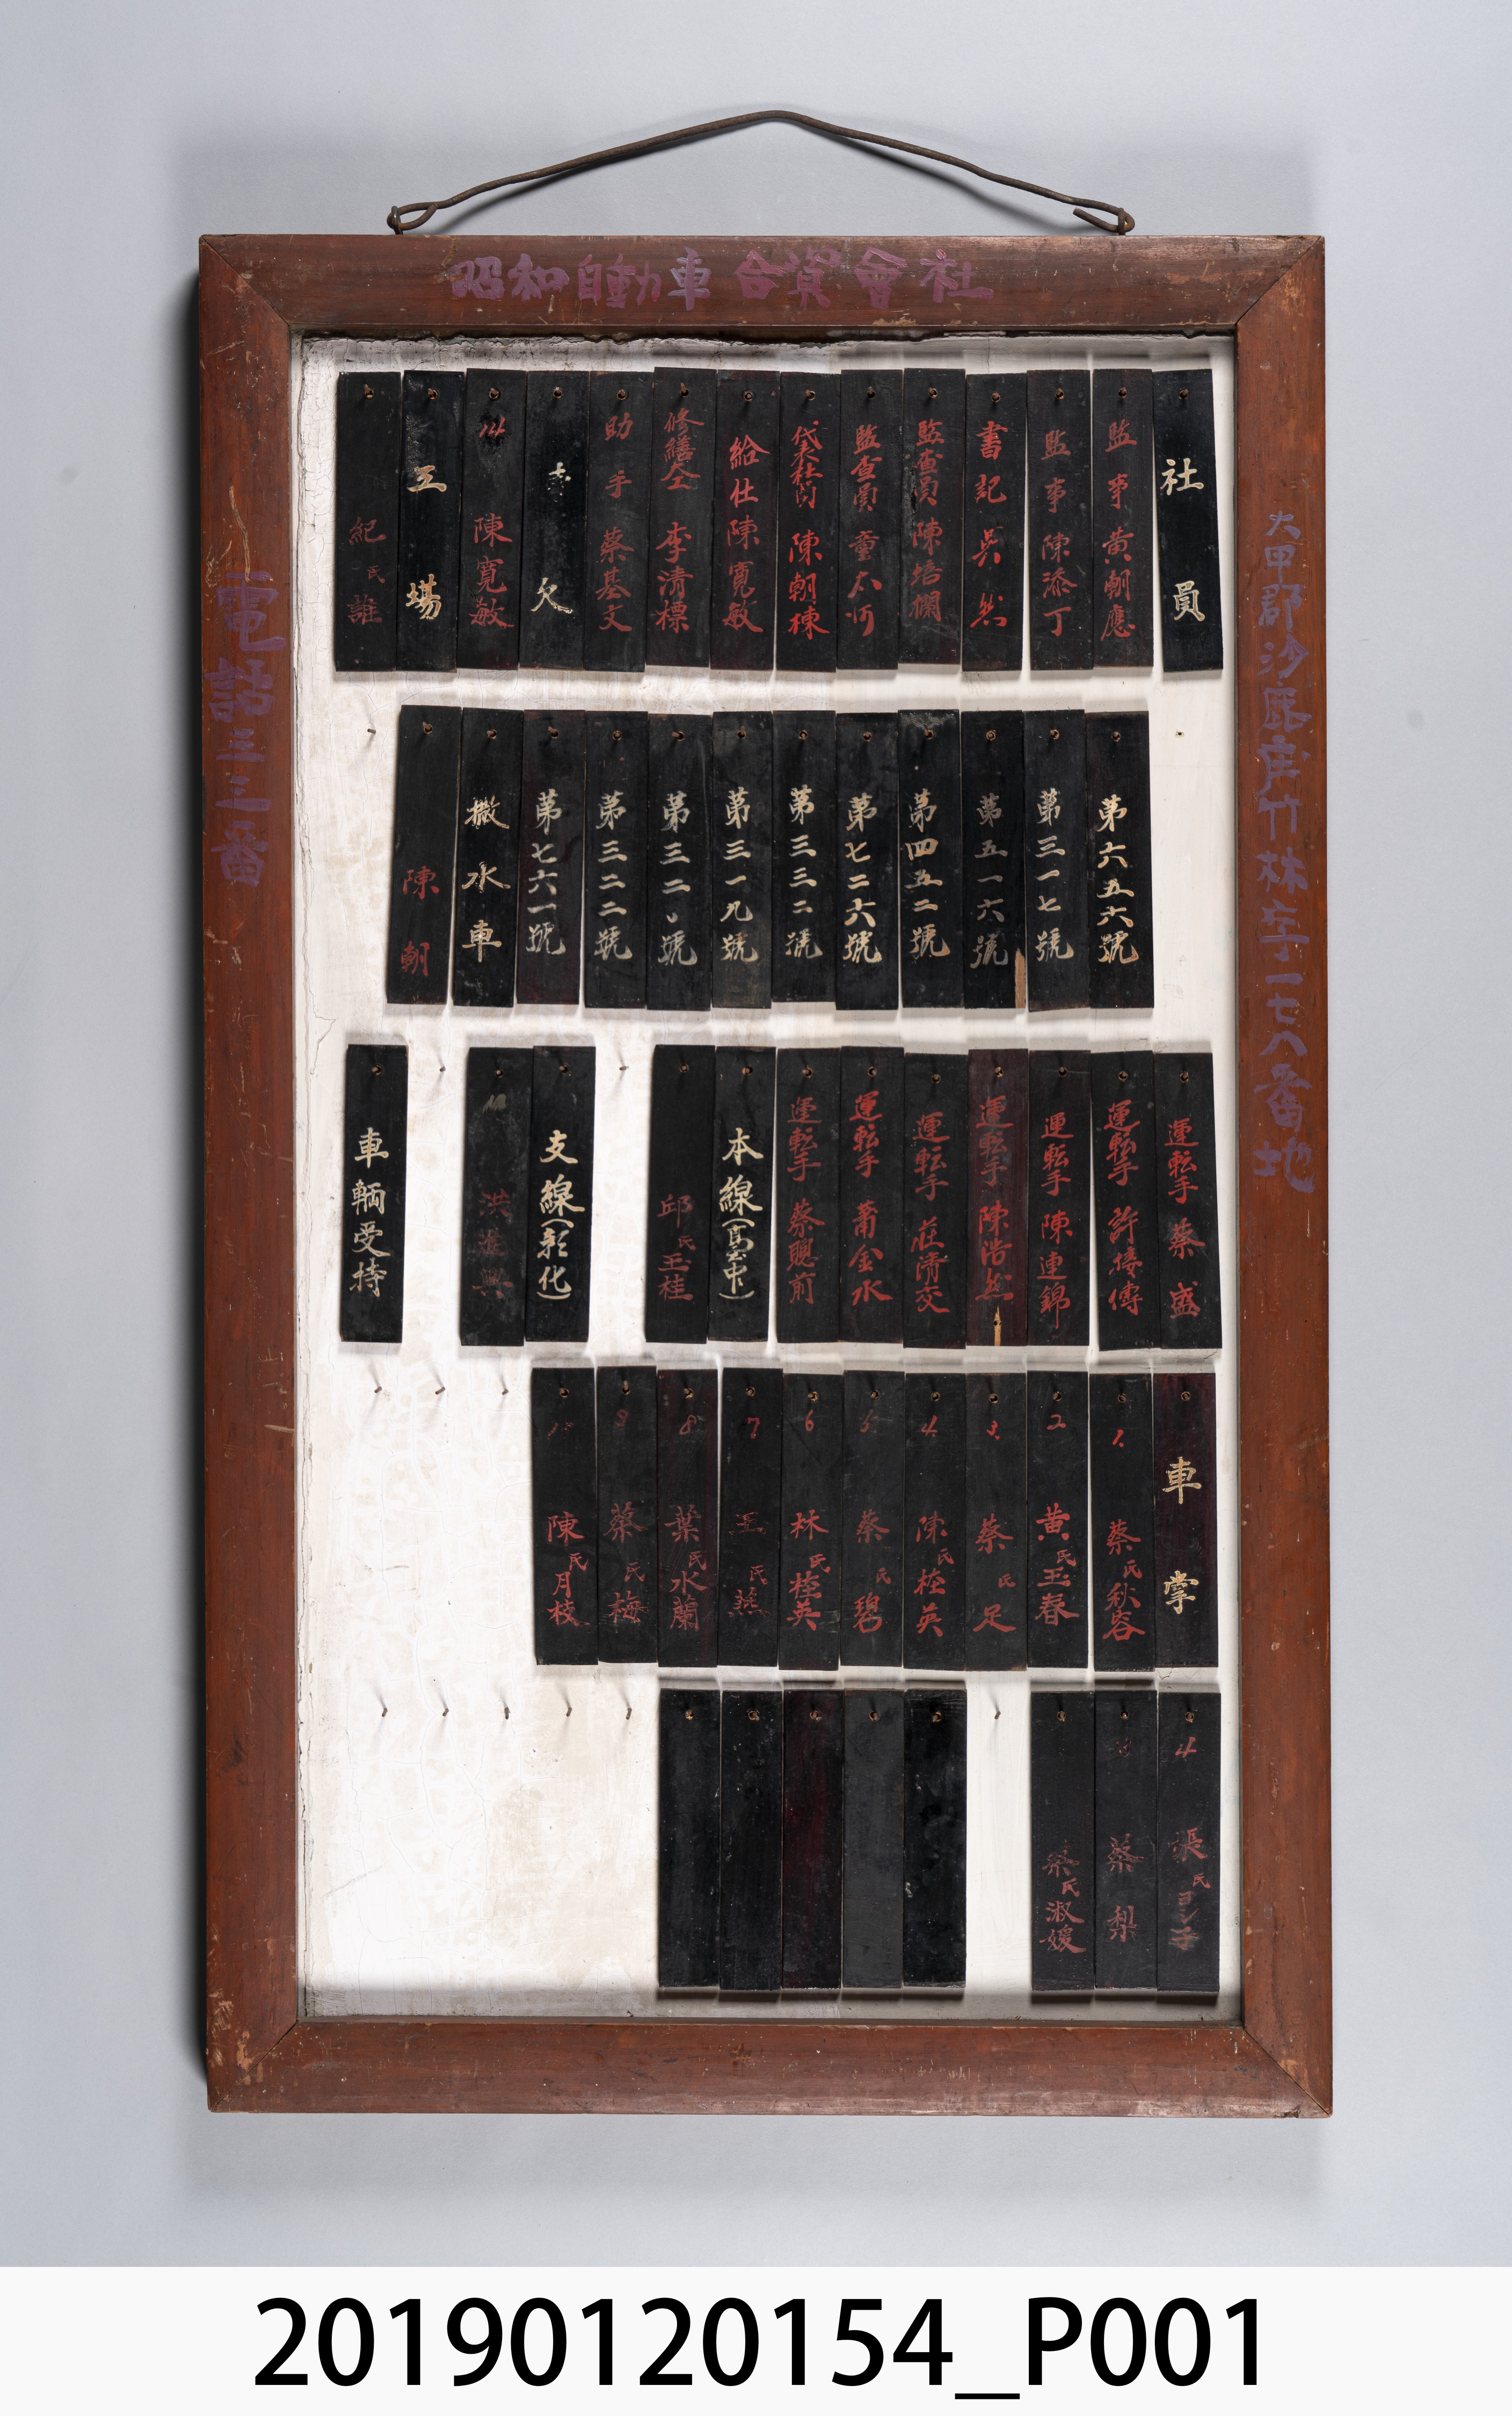 昭和自動車合資會社
大甲郡沙鹿庄竹林字一七八番地
電話三三番
社員
監事 黄朝應
監事 陳添丁
書記 吳然
監査員 陳培欄
監査員 童
代表社員 陳朝棟
給仕 陳寛敏
修繕全 李清標
助手 蔡基文
欠
14 陳寛敏
工場
紀氏
第六五六號
第三一七號
第五一六號
第四五二號
第七二六號
第三三二號
第三一九號
第三二〇號
第三二二號
第七六一號
撒水車
陳朝
運転手 蔡盛
運転手 許傳
運転手 陳連錦
運転手 陳浩然
運転手 莊清交
運転手 蕭金水
運転手 蔡聰前
本線(臺中)
邱氏玉桂
支線(彰化)
洪進興
車輌受持
車掌
1. 蔡氏秋容
2 黄氏玉春
3. 蔡氏足
4 陳氏桂英
5 蔡氏碧
6 林氏桂英
7 王氏燕
8 葉氏水蘭
9 蔡氏梅
陳氏月枝
張氏
蔡梨
蔡氏淑媛
20190120154_P001